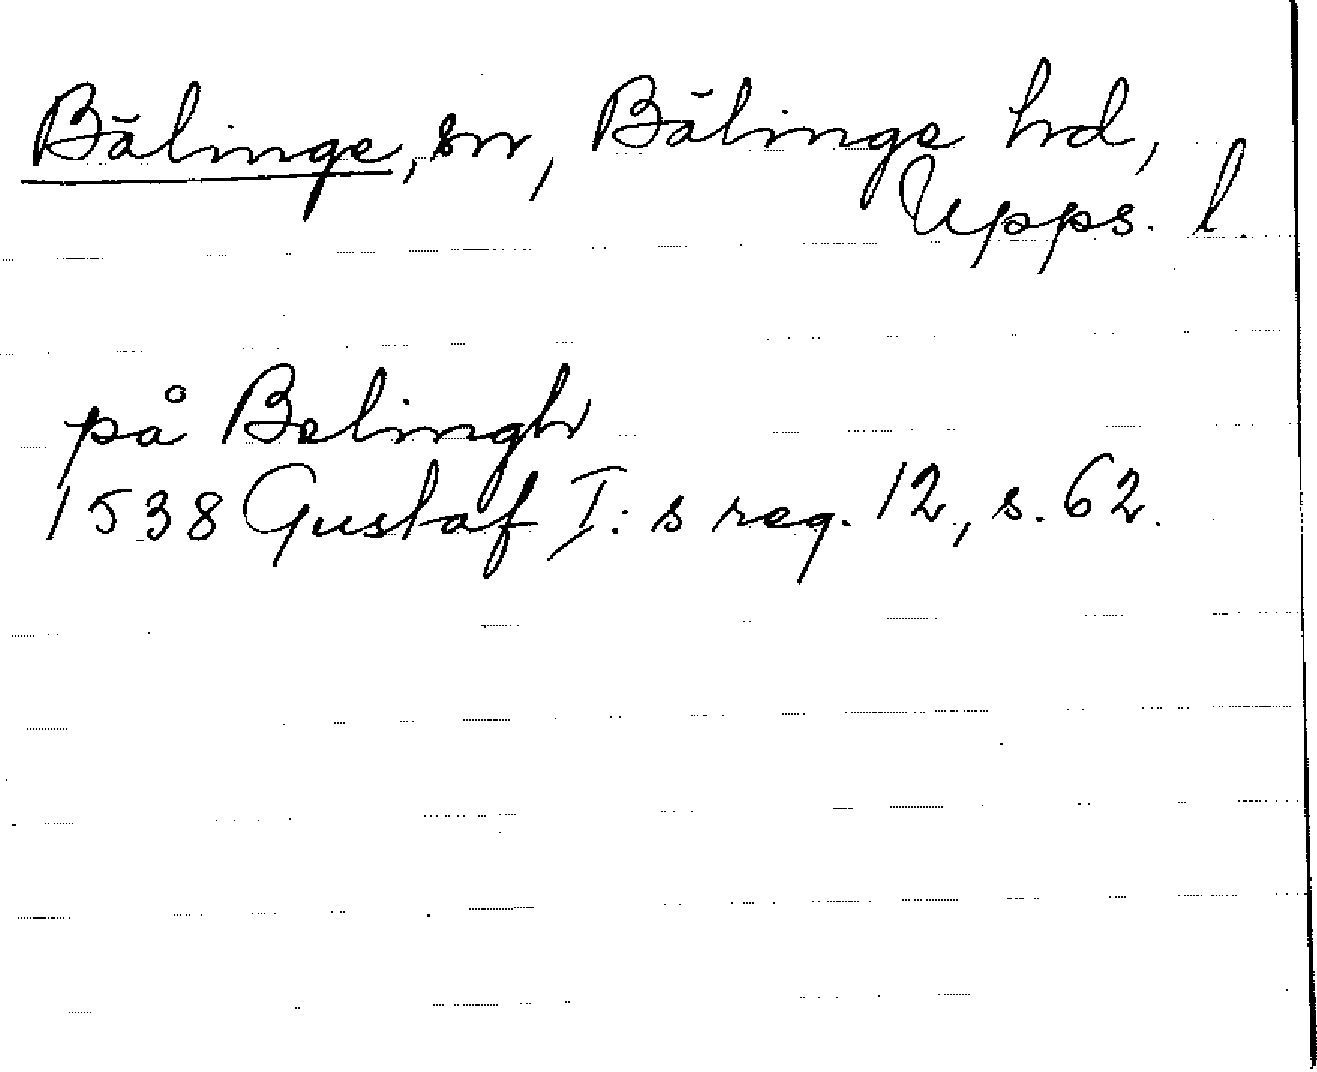 Bälinge, sn, Bälinge hd,
Upps. l.
på Belingh
1538 Gustaf I:s reg. 12, s. 62.